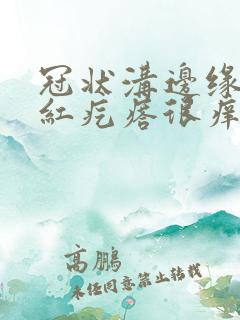 冠状溝邊缘
紅疙瘩很痒
高鹏
未经同意禁止转载